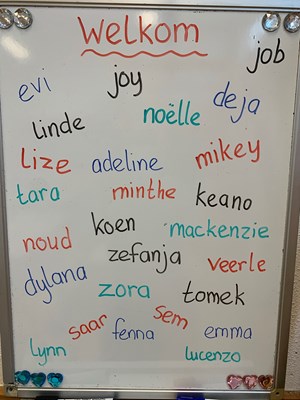 Welkom
job
evi
joy
deja
noëlle
linde
mikey
lize
adeline
tara
minthe
keano
koen
mackenzie
noud
zefanja
veerle
dylana
zora
tomek
saar
sem
fenna
emma
lynn
lucenzo